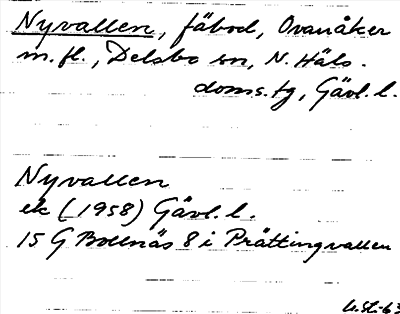 Nyvallen, fäbod, Ovanåker
m.fl., Delsbo sn, N. Häls.
doms.tg, Gävl. l.
Nyvallen
ek (1958) Gävl. l.
15 G Bollnäs 8 i Prättingvallen